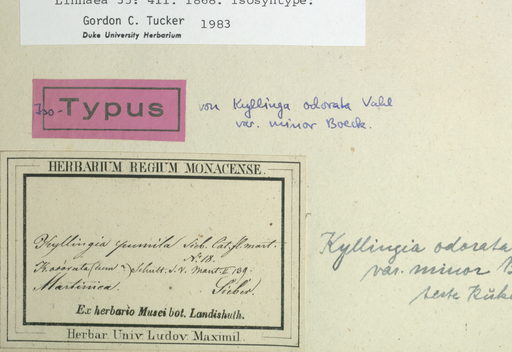 Linnaea 35: 411. 1868. Isosyntype.
Gordon C. Tucker 1983
Duke University Herbarium
Iso-Typus
von Kyllinga odorata Vahl
var. minor Boeck.
HERBARIUM REGIUM MONACENSE.
Kyllingia pumila Sieb. Cat. fl. mart.
N. 18.
K. odorata Schult. s. v. Mant. II 139.
Martinica. Sieber.
Ex herbario Musei bot. Landishuth.
Herbar. Univ. Ludov. Maximil.
Kyllingia odorata
var. minor B
teste Kük